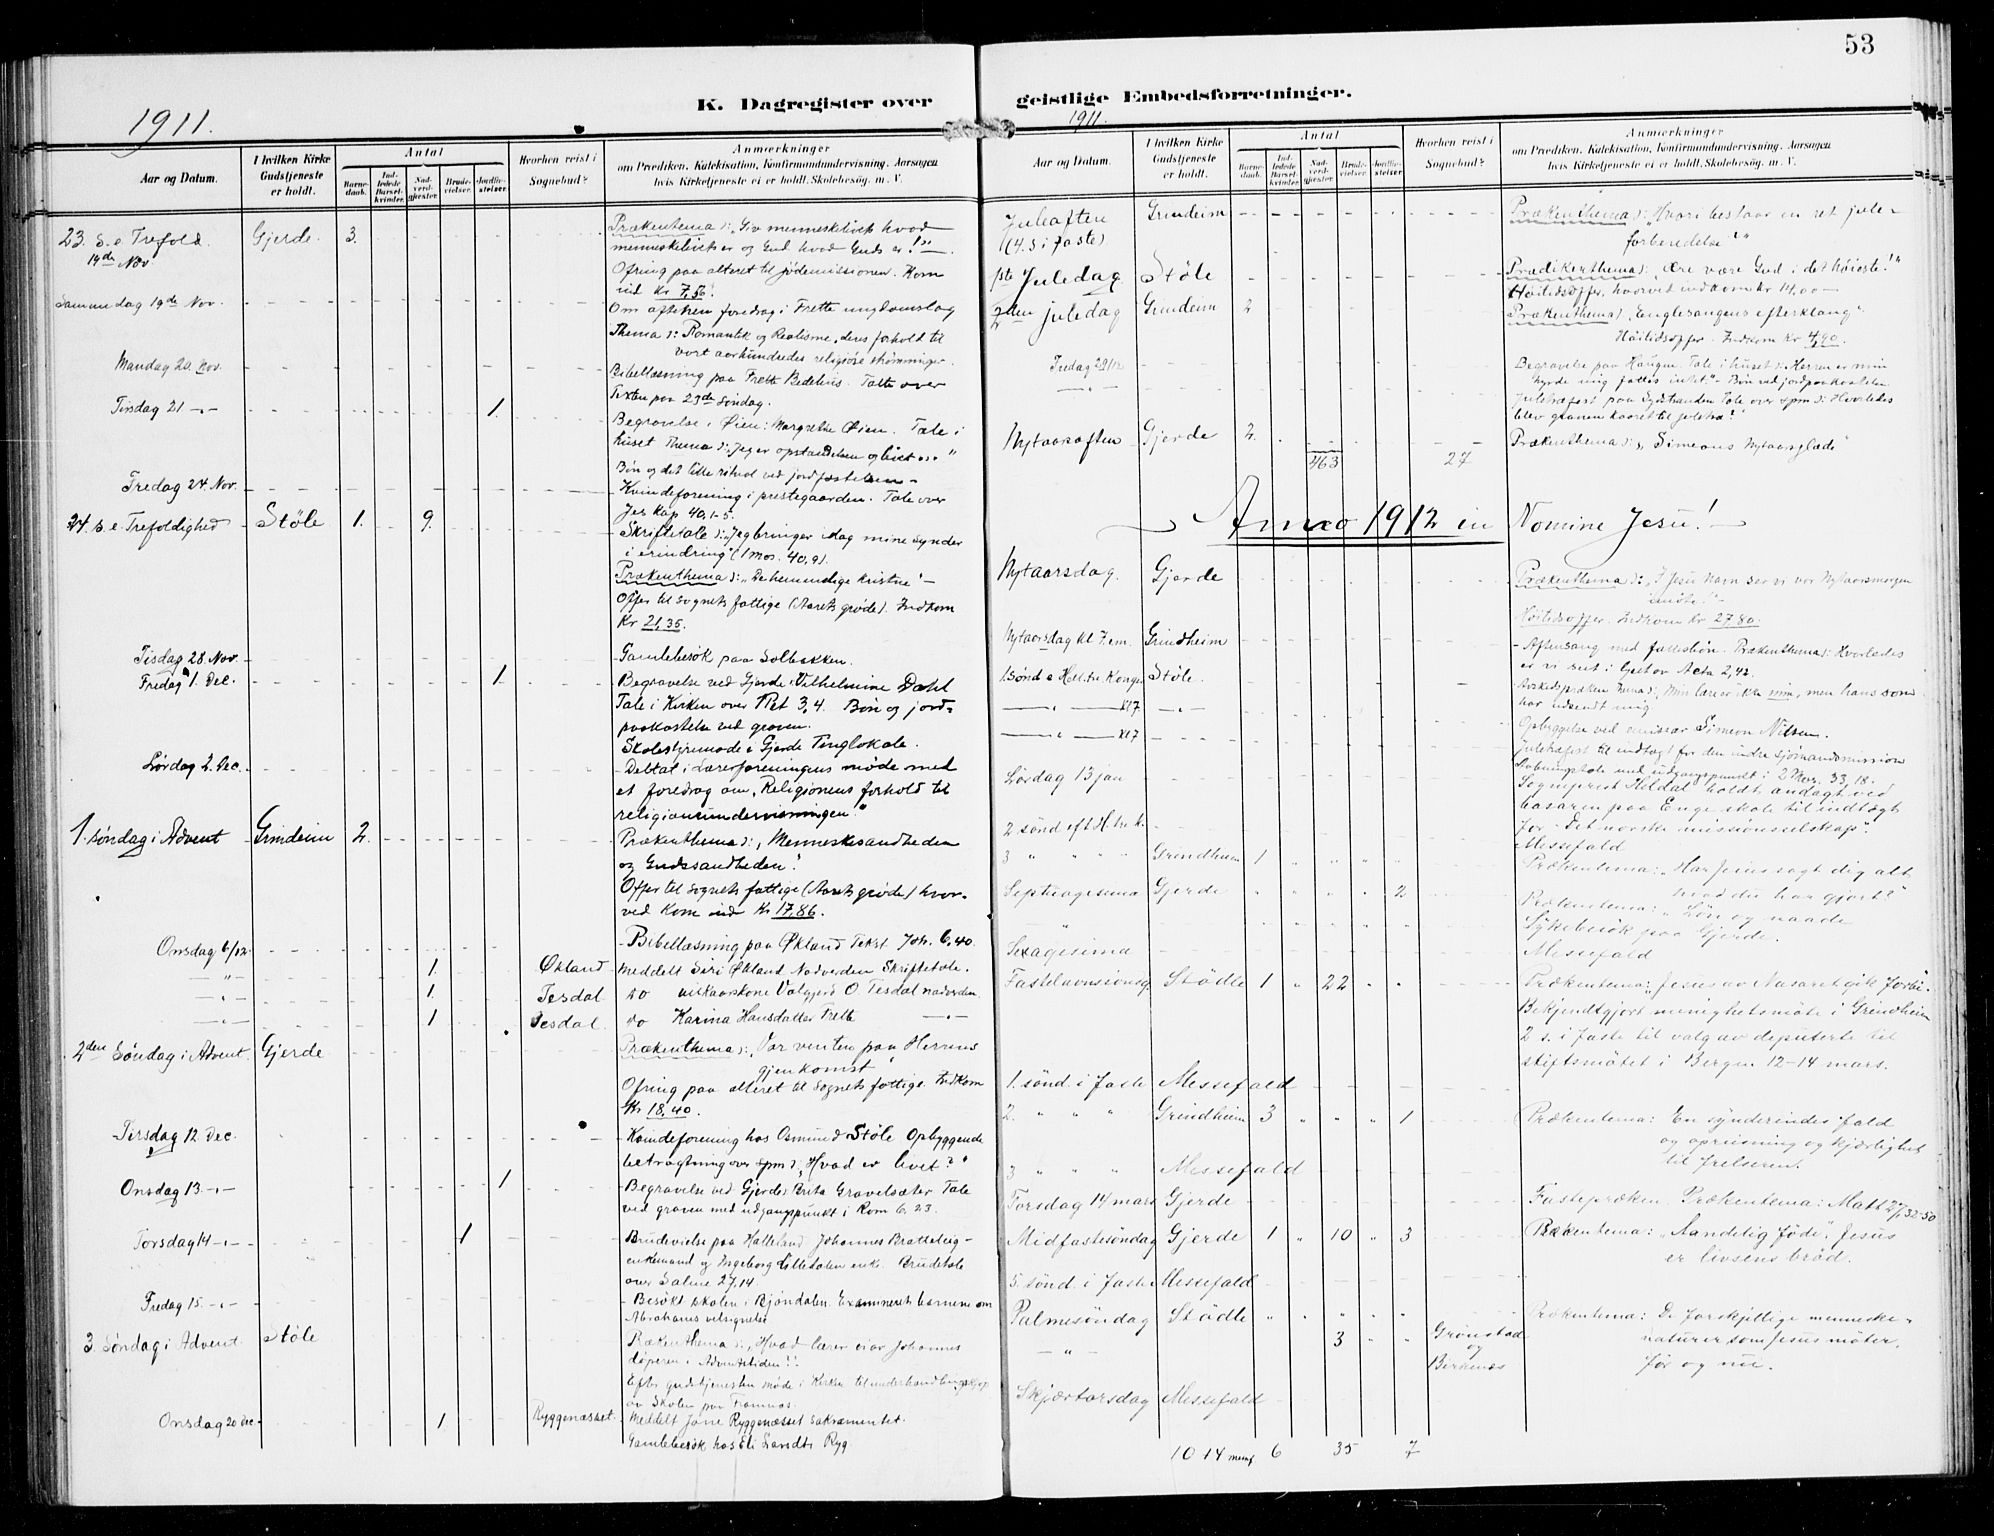 53
K. Dagregister over
geistlige Embedsforretninger.
1911.
Aar og Datum.
I hvilken Kirke Gudstjeneste er holdt.
Antal
Barnedaab.
Indledede Barselkvinder.
Nadverdgjester.
Brudevielser.
Jordfæstelser.
Hvorhen reist i Sognebud?
Anmærkninger
om Prædiken, Katekisation, Konfirmandundervisning, Aarsagen
hvis Kirketjeneste ei er holdt, Skolebesøg, m. V.
23. S. e. Trefold. Gjerde. 3. Prækentema ɔ: „Giv menneskelivet hvad
19de Nov menneskelivets er og Gud hvad Guds er!"
Ofring paa alteret til jødemissionen. Kom
ind Kr 7,50.
Samme dag 19de Nov. Om aftenen foredrag i Frette ungdomslag
Thema ɔ: Romantik og Realisme, deres forhold til
vort aarhundredes religiøse strømninger.
Mandag 20. Nov. Bibellæsning paa Frette Bedehus. Talte over
Texten paa 23de Søndag.
Tirsdag 21 1. Begravelse i Øien: Margrethe Øien. Tale i
huset Thema ɔ: Jeg er opstandelsen og livet
Bøn og det lille ritual ved jordfæstelsen
Fredag 24. Nov. Kvindeforening i prestegaarden. Tale over
Jes kap 40,1-5.
24. s. e. Trefoldighed Støle 1. 9. Skriftetale ɔ: „Jeg bringer idag mine synder
i erindring" (1 Mos. 40,9).
Prækenthema ɔ: „De hemmelige kristne"
Offer til sognets fattige (Aarets grøde). Indkom
Kr 21,35.
Tisdag 28. Nov. Gamlebesøk paa Solbakken.
Fredag 1. Dec. 1 Begravelse ved Gjerde: Vilhelmine Dahl
Tale i Kirken over Pet 3,4. Bøn og jord-
paakastelse ved graven.
Skolestyremøde i Gjerde Tinglokale.
Lørdag 2. Dec. Deltat i Lærerforeningens møde med
et foredrag om „Religionens forhold til
religionsundervisningen."
1. søndag i Advent Grindeim 2. Prækenthema ɔ: „Menneskesandheden
og Gudssandheden"
Offer til sognets fattige (Aarets grøde) hvor-
ved kom ind Kr 17,86.
Onsdag 6/12. Bibellæsning paa Økland Tekst Joh. 6,40
— " — 1. Økland Meddelt Siri Økland Nadverden Skriftetale.
— " — 1. Tesdal do Valgjerd O. Tesdal nadverden
— " — 1 Tesdal. do Karina Hansdatter Frette
2den Søndag i Advent. Gjerde Prækenthema ɔ: „Vor venten paa Herrens
gjenkomst"
Ofring paa alteret til sognets fattige. Indkom
Kr 18,40.
Tirsdag 12 Dec. Kvindeforening hos Osmund Støle Opbyggende
betragtning over spm ɔ: „Hvad er livet?"
Onsdag 13 1 Begravelse ved Gjerde: Brita Gravelsæter Tale
ved graven med udgangspunkt i Rom 6. 23.
Torsdag 14 1 Brudevielse paa Halleland Johannes Brattelvig
enkemand og Ingeborg Lilledalen enke. Brudetale
over Salme 27.14.
Fredag 15. Besøkt skolen i Bjøndalen. Examineret barnene om
Abrahams velsignelse
3. Søndag i Advent Støle Prækenthema ɔ: „Hvad lærer vi av Johannes
døperen i Adventstiden!"
Efter gudstjenesten møde i Kirken til underhandling
av Skolen paa Framnæs.
Onsdag 20 Dec. 1 Ryggenæsset. Meddelt Jone Ryggenæsset Sakramentet.
Gamlebesøk hos Eli Ryg.
1911.
Aar og Datum.
I hvilken Kirke Gudstjeneste er holdt.
Antal
Barnedaab.
Indledede Barselkvinder.
Nadverdgjester.
Brudevielser.
Jordfæstelser.
Hvorhen reist i Sognebud?
Anmærkninger
om Prædiken, Katekisation, Konfirmandundervisning, Aarsagen
hvis Kirketjeneste ei er holdt, Skolebesøg, m. V.
Juleaften Grindeim Prækenthema ɔ: „Hvori bestaar en ret jule-
(4. S i faste) forberedelse?"
1ste Juledag Støle Prædikenthema ɔ: „Ære være Gud i det høieste!"
Høitidsoffer, hvorved indkom kr 14,00
2den juledag Grindeim 2 Prækenthema ɔ: „Englesangens efterklang"
Høitidsoffer. Indkom Kr 4,90.
Fredag 29/12 Begravelse paa Haugen. Tale i huset: „Herren er min
hyrde mig fattes intet." Bøn ved jordpaakastelsen
Juletræfest paa Sydstranden Tale over spm ɔ: Hvorledes
blev granen kaaret til juletræ?
Nytaarsaften Gjerde 2. Prækenthema ɔ: „Simeons Nytaarsglæde"
463 27
Anno 1912 in Nomine Jesu!
Nytaarsdag. Gjerde Prækenthema ɔ: „I Jesu Navn ser vi vor Nytaarsmorgen
imøte!"
Høitidsoffer. Indkom Kr 27,80.
Nytaarsdag kl 7. em. Grindheim Aftensang med fællesbøn. Prækenthema ɔ: Hvorledes
er vi set i Acta 2,42.
1. Sønd e Hell. tre Konger Støle. Avskedspræken Tema ɔ: Min lære er ikke min, men hans som
har udsendt mig
Opbyggelse ved emissær Simeon Nilsen.
Juletræfest til indtægt for den indre sjømandsmission
Aabningstale med udgangspunkt i 2 Mos. 33,18.
Lørdag 13 jan Sogneprest Hildal holdt andagt ved
basaren paa Enge skole til indtægt
for „Det norske missionsselskap".
2 sønd eft H. tre k. Messefald
3 " " " Grindheim 1 " " " " Prækentema: „Har Jesus sagt dig alt
hvad du har gjort?"
Septuagesima Gjerde " " " " 2 Prækentema: „Løn og naade
Sykebesøk paa Gjerde.
Sexagesima Messefald
Fastelavnssønsdg Stødle 1 " 22 " " Prækentema: „Jesus av Nasaret gik forbi"
Bekjendtgjort menighetsmøte i Grindheim
2 s. i faste til valg av deputerte til
stiftsmøtet i Bergen 12-14 mars.
1. sønd. i faste Messefald
2. " " " Grindheim 3 " " " 1 Prækentema: En synderindes fald
og opreisning og kjærlighet
til frelseren.
3 " " " Messefald
Torsdag 14 mars Gjerde Fastepræken. Prækentema: Matt 27,32-50
Midfastesøndag Gjerde 1 " 10 " 3 Prækentema: „Aandelig føde". Jesus
er livsens brød.
5. sønd. i faste Messefald
Palmesøndag Stødle " " " " " Prækentema: De forskjellige menneske-
— " — 3 " " Grønstad og Birkenes naturer som Jesus møter,
før og nu.
Skjærtorsdag Messefald
10 14 6 35 7